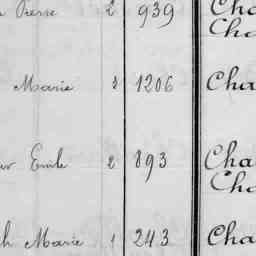 Pierre 2 939 Cha
Cha
Marie 3 1206 Cha
Emile 2 893 Cha
Cha
Marie 1 243 Cha